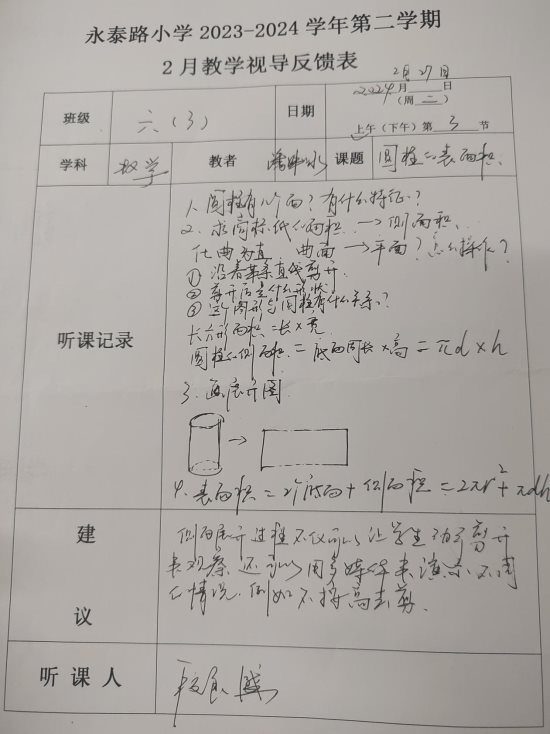 永泰路小学 2023-2024 学年第二学期
2 月教学视导反馈表
班级 六（3） 日期 2024年2月27日
（周二）
上午（下午）第 3 节
学科 数学 教者 课题 圆柱的表面积
听课记录
1、圆柱有几个面？有什么特征？
2、求商标纸的面积 → 侧面积
化曲为直 曲面 → 平面？怎么操作？
① 沿着某条直线剪开
② 剪开后是什么形状
③ 这个图形与圆柱有什么关系？
长方形面积 = 长×宽
圆柱的侧面积 = 底面周长×高 = πd×h
3、画展开图
→
4、表面积 = 2个底面 + 侧面积 = 2πr²+πdh
建议
侧面展开过程不仅可以让学生动手剪开
来观察，还可以用多媒体来演示不同
的情况，例如不按高去剪。
听课人